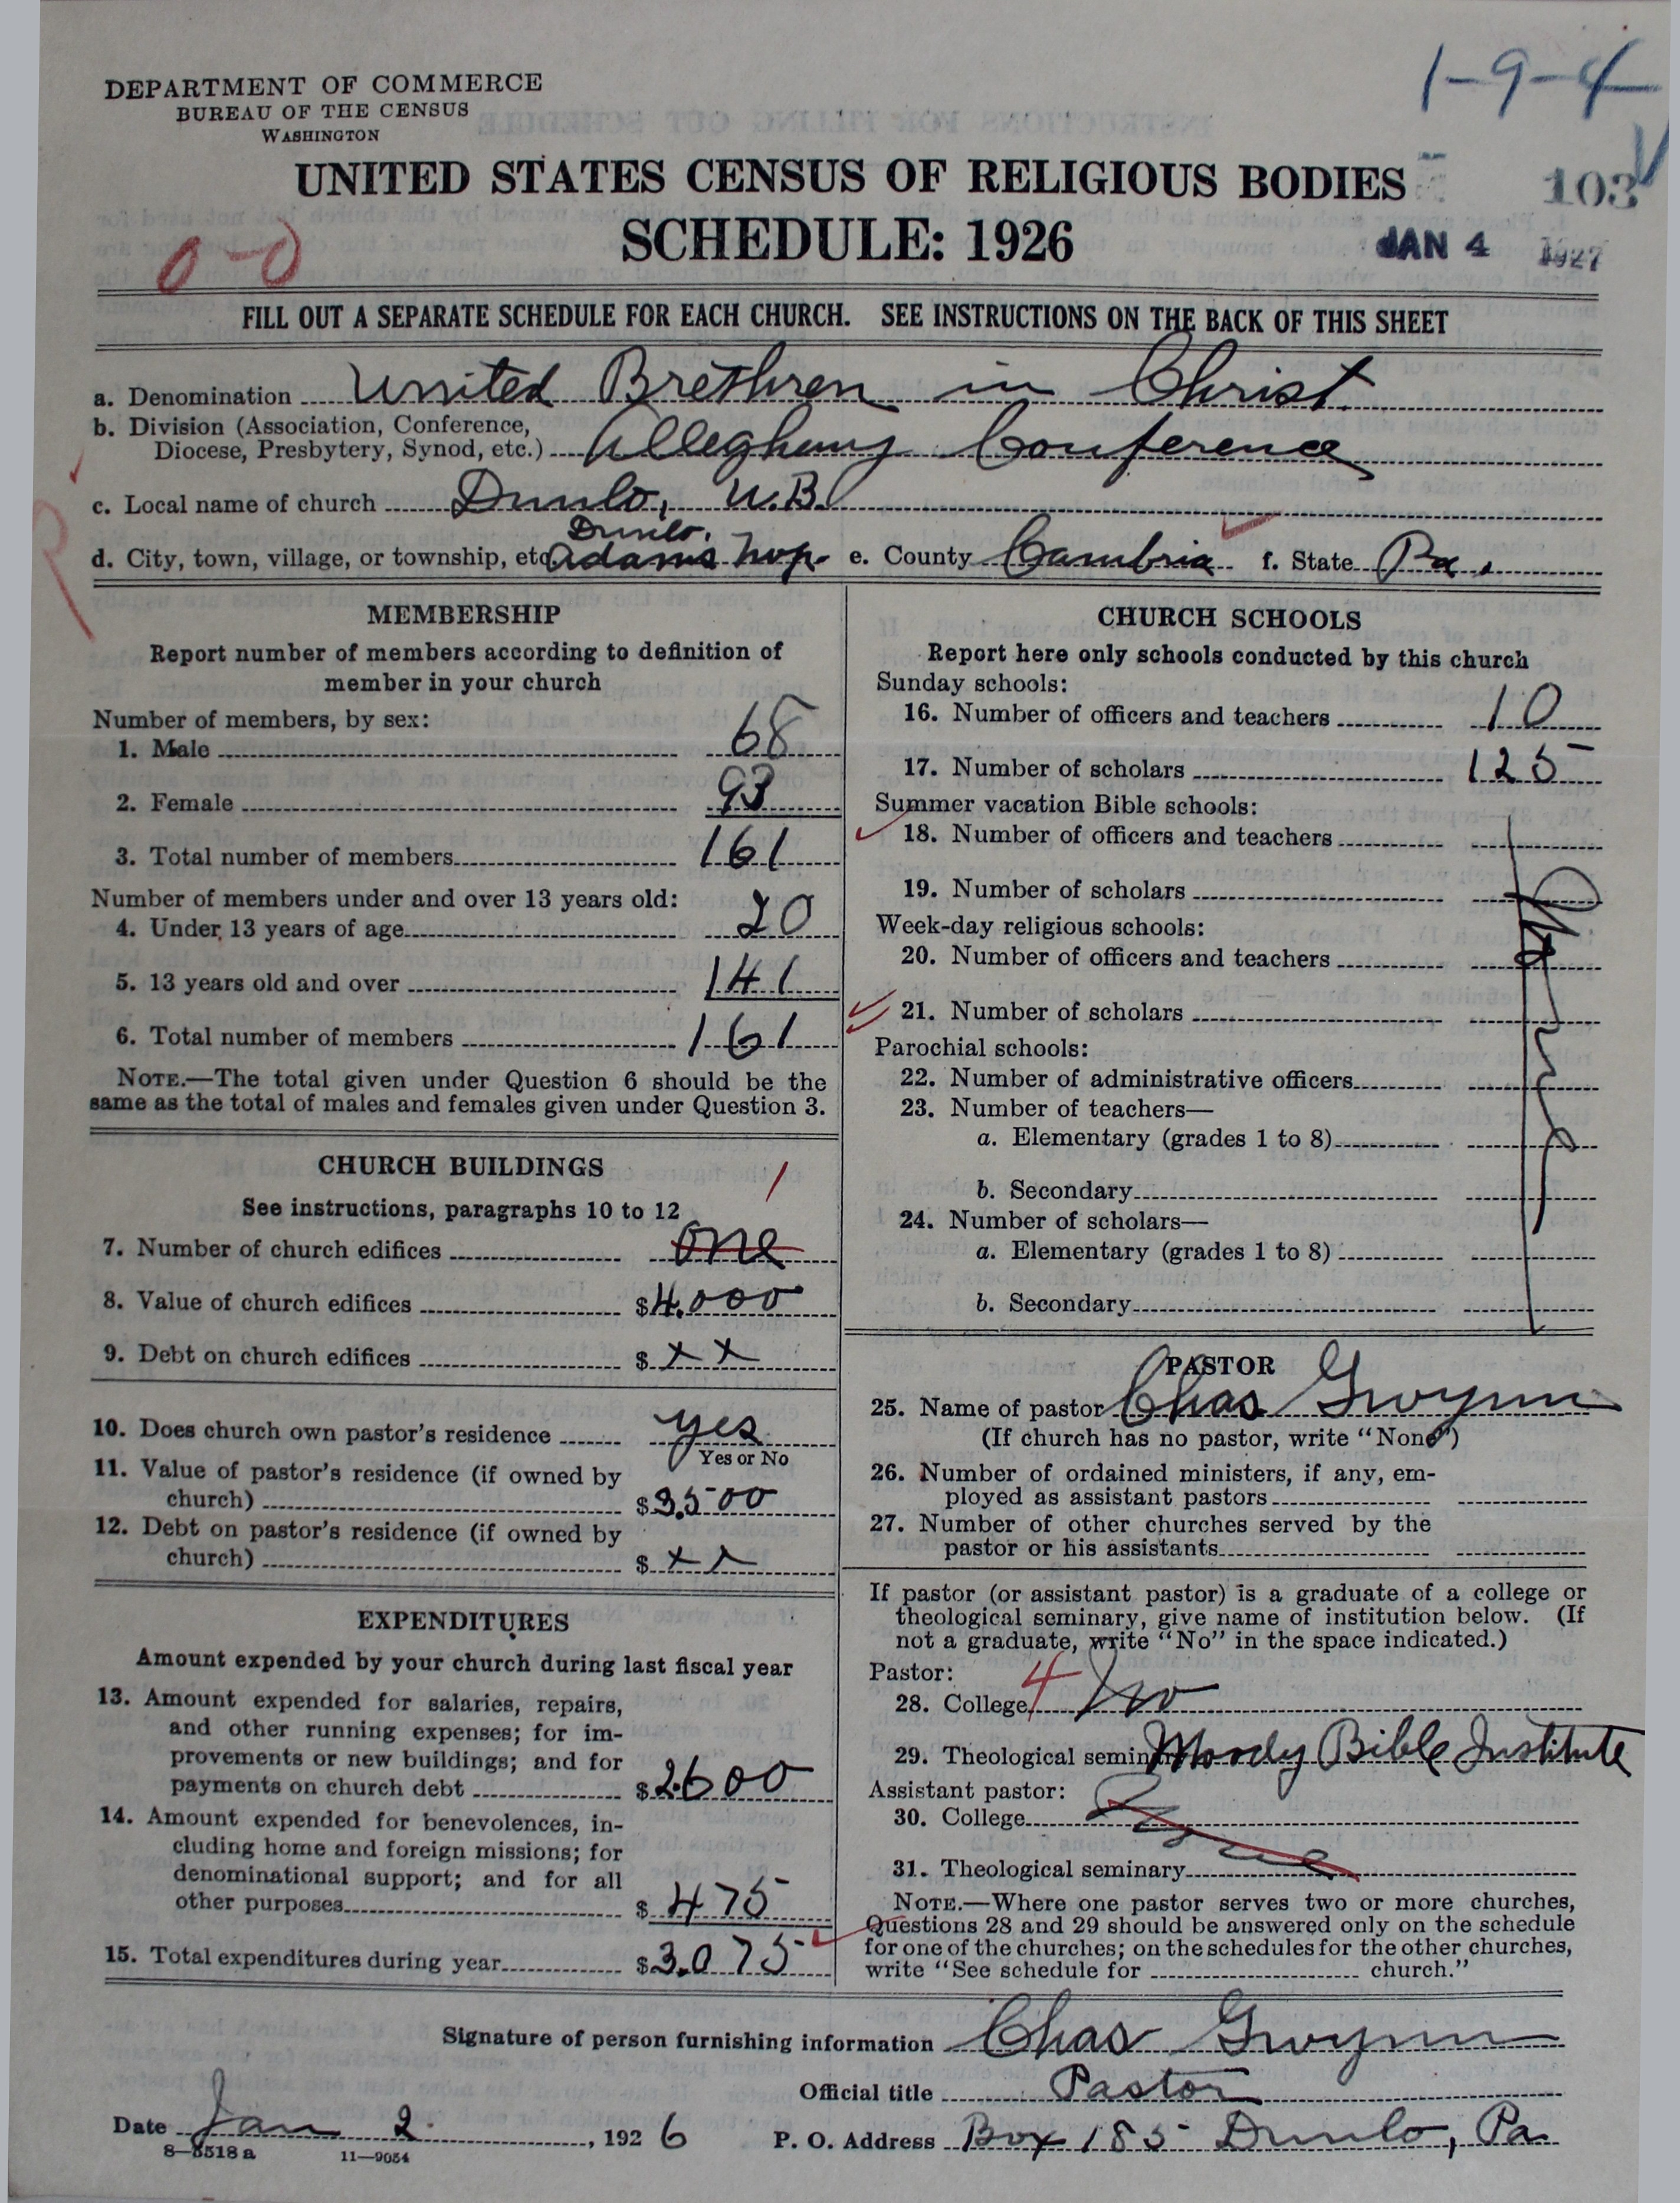 1-9-4
DEPARTMENT OF COMMERCE
BUREAU OF THE CENSUS
WASHINGTON
UNITED STATES CENSUS OF RELIGIOUS BODIES
103
SCHEDULE: 1926
JAN 4 1927
0-0
FILL OUT A SEPARATE SCHEDULE FOR EACH CHURCH. SEE INSTRUCTIONS ON THE BACK OF THIS SHEET
a. Denomination United Brethren in Christ.
b. Division (Association, Conference,
Diocese, Presbytery, Synod, etc.) Allegheny Conference
c. Local name of church Dunlo, U.B.
Dunlo.
d. City, town, village, or township, etc. Adams twp. e. County Cambria f. State Pa.
MEMBERSHIP
Report number of members according to definition of
member in your church
Number of members, by sex:
1. Male 68
2. Female 93
3. Total number of members 161
Number of members under and over 13 years old:
4. Under 13 years of age 20
5. 13 years old and over 141
6. Total number of members 161
NOTE.—The total given under Question 6 should be the
same as the total of males and females given under Question 3.
CHURCH BUILDINGS
1
See instructions, paragraphs 10 to 12
7. Number of church edifices one
8. Value of church edifices $4.000
9. Debt on church edifices $ x x
10. Does church own pastor's residence yes
Yes or No
11. Value of pastor's residence (if owned by
church) $3.500
12. Debt on pastor's residence (if owned by
church) $ x x
EXPENDITURES
Amount expended by your church during last fiscal year
13. Amount expended for salaries, repairs,
and other running expenses; for im-
provements or new buildings; and for
payments on church debt $2.600
14. Amount expended for benevolences, in-
cluding home and foreign missions; for
denominational support; and for all
other purposes $ 475
15. Total expenditures during year $3.075
CHURCH SCHOOLS
Report here only schools conducted by this church
Sunday schools:
16. Number of officers and teachers 10
17. Number of scholars 125
Summer vacation Bible schools:
18. Number of officers and teachers
19. Number of scholars
Week-day religious schools:
20. Number of officers and teachers
21. Number of scholars
Parochial schools:
22. Number of administrative officers
23. Number of teachers—
a. Elementary (grades 1 to 8)
b. Secondary
24. Number of scholars—
a. Elementary (grades 1 to 8)
b. Secondary
PASTOR
25. Name of pastor Chas Gwynn
(If church has no pastor, write "None")
26. Number of ordained ministers, if any, em-
ployed as assistant pastors
27. Number of other churches served by the
pastor or his assistants
If pastor (or assistant pastor) is a graduate of a college or
theological seminary, give name of institution below. (If
not a graduate, write "No" in the space indicated.)
Pastor:
28. College 4 No
29. Theological seminary Moody Bible Institute
Assistant pastor:
30. College
31. Theological seminary
NOTE.—Where one pastor serves two or more churches,
Questions 28 and 29 should be answered only on the schedule
for one of the churches; on the schedules for the other churches,
write "See schedule for church."
Signature of person furnishing information Chas Gwynn
Official title Pastor
Date Jan 2. , 1926 P. O. Address Box 185 Dunlo, Pa.
8—8518 a 11—9054